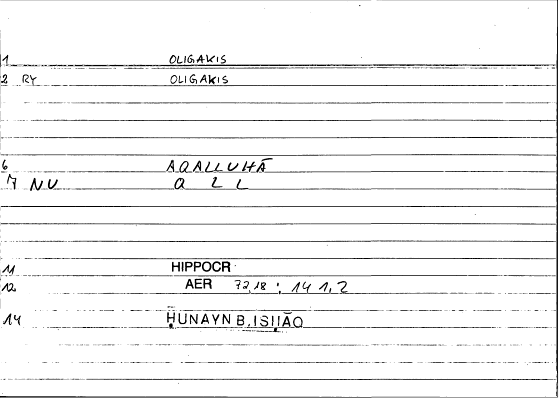 1 OLIGAKIS
2 RY OLIGAKIS
6 AQALLUHĀ
7 NU Q L L
11 HIPPOCR
12 AER 72,18 : 14 1,2
14 ḤUNAYN B. ISḤĀQ